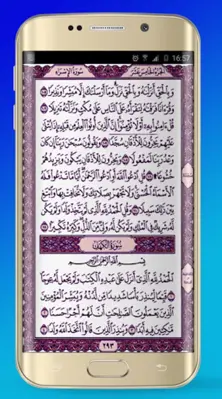 16:57
الجزء الخامس عشر
سورة الإسراء
وَبِالْحَقِّ أَنزَلْنَاهُ وَبِالْحَقِّ نَزَلَ وَمَا أَرْسَلْنَاكَ إِلَّا مُبَشِّرًا وَنَذِيرًا
وَقُرْآنًا فَرَقْنَاهُ لِتَقْرَأَهُ عَلَى النَّاسِ عَلَىٰ مُكْثٍ وَنَزَّلْنَاهُ تَنزِيلًا
قُلْ آمِنُوا بِهِ أَوْ لَا تُؤْمِنُوا إِنَّ الَّذِينَ أُوتُوا الْعِلْمَ مِن قَبْلِهِ إِذَا يُتْلَىٰ
عَلَيْهِمْ يَخِرُّونَ لِلْأَذْقَانِ سُجَّدًا وَيَقُولُونَ سُبْحَانَ رَبِّنَا إِن كَانَ
وَعْدُ رَبِّنَا لَمَفْعُولًا وَيَخِرُّونَ لِلْأَذْقَانِ يَبْكُونَ وَيَزِيدُهُمْ
خُشُوعًا قُلِ ادْعُوا اللَّهَ أَوِ ادْعُوا الرَّحْمَٰنَ أَيًّا مَّا تَدْعُوا فَلَهُ
الْأَسْمَاءُ الْحُسْنَىٰ وَلَا تَجْهَرْ بِصَلَاتِكَ وَلَا تُخَافِتْ بِهَا وَابْتَغِ
بَيْنَ ذَٰلِكَ سَبِيلًا وَقُلِ الْحَمْدُ لِلَّهِ الَّذِي لَمْ يَتَّخِذْ وَلَدًا وَلَمْ يَكُن
لَّهُ شَرِيكٌ فِي الْمُلْكِ وَلَمْ يَكُن لَّهُ وَلِيٌّ مِّنَ الذُّلِّ وَكَبِّرْهُ تَكْبِيرًا
سورة الكهف
بِسْمِ اللَّهِ الرَّحْمَٰنِ الرَّحِيمِ
الْحَمْدُ لِلَّهِ الَّذِي أَنزَلَ عَلَىٰ عَبْدِهِ الْكِتَابَ وَلَمْ يَجْعَل لَّهُ عِوَجًا
قَيِّمًا لِّيُنذِرَ بَأْسًا شَدِيدًا مِّن لَّدُنْهُ وَيُبَشِّرَ الْمُؤْمِنِينَ
الَّذِينَ يَعْمَلُونَ الصَّالِحَاتِ أَنَّ لَهُمْ أَجْرًا حَسَنًا
مَّاكِثِينَ فِيهِ أَبَدًا وَيُنذِرَ الَّذِينَ قَالُوا اتَّخَذَ اللَّهُ وَلَدًا
٢٩٣